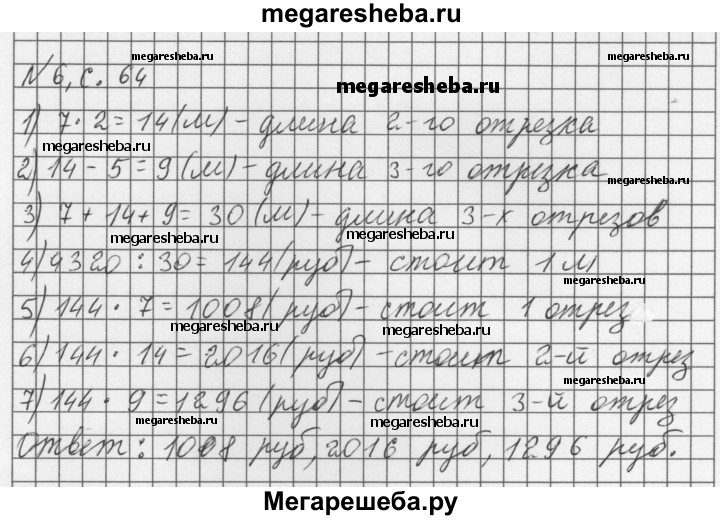 megaresheba.ru
megaresheba.ru megaresheba.ru
№6, с. 64
megaresheba.ru
1) 7 · 2 = 14 (м) – длина 2-го отрезка
megaresheba.ru
2) 14 – 5 = 9 (м) – длина 3-го отрезка
megaresheba.ru
3) 7 + 14 + 9 = 30 (м) – длина 3-х отрезов
megaresheba.ru megaresheba.ru
4) 4320 : 30 = 144 (руб) – стоит 1 м
megaresheba.ru
5) 144 · 7 = 1008 (руб) – стоит 1 отрез
megaresheba.ru megaresheba.ru
6) 144 · 14 = 2016 (руб) – стоит 2-й отрез
megaresheba.ru
7) 144 · 9 = 1296 (руб) – стоит 3-й отрез
megaresheba.ru megaresheba.ru
Ответ: 1008 руб, 2016 руб, 1296 руб.
Мегарешеба.ру